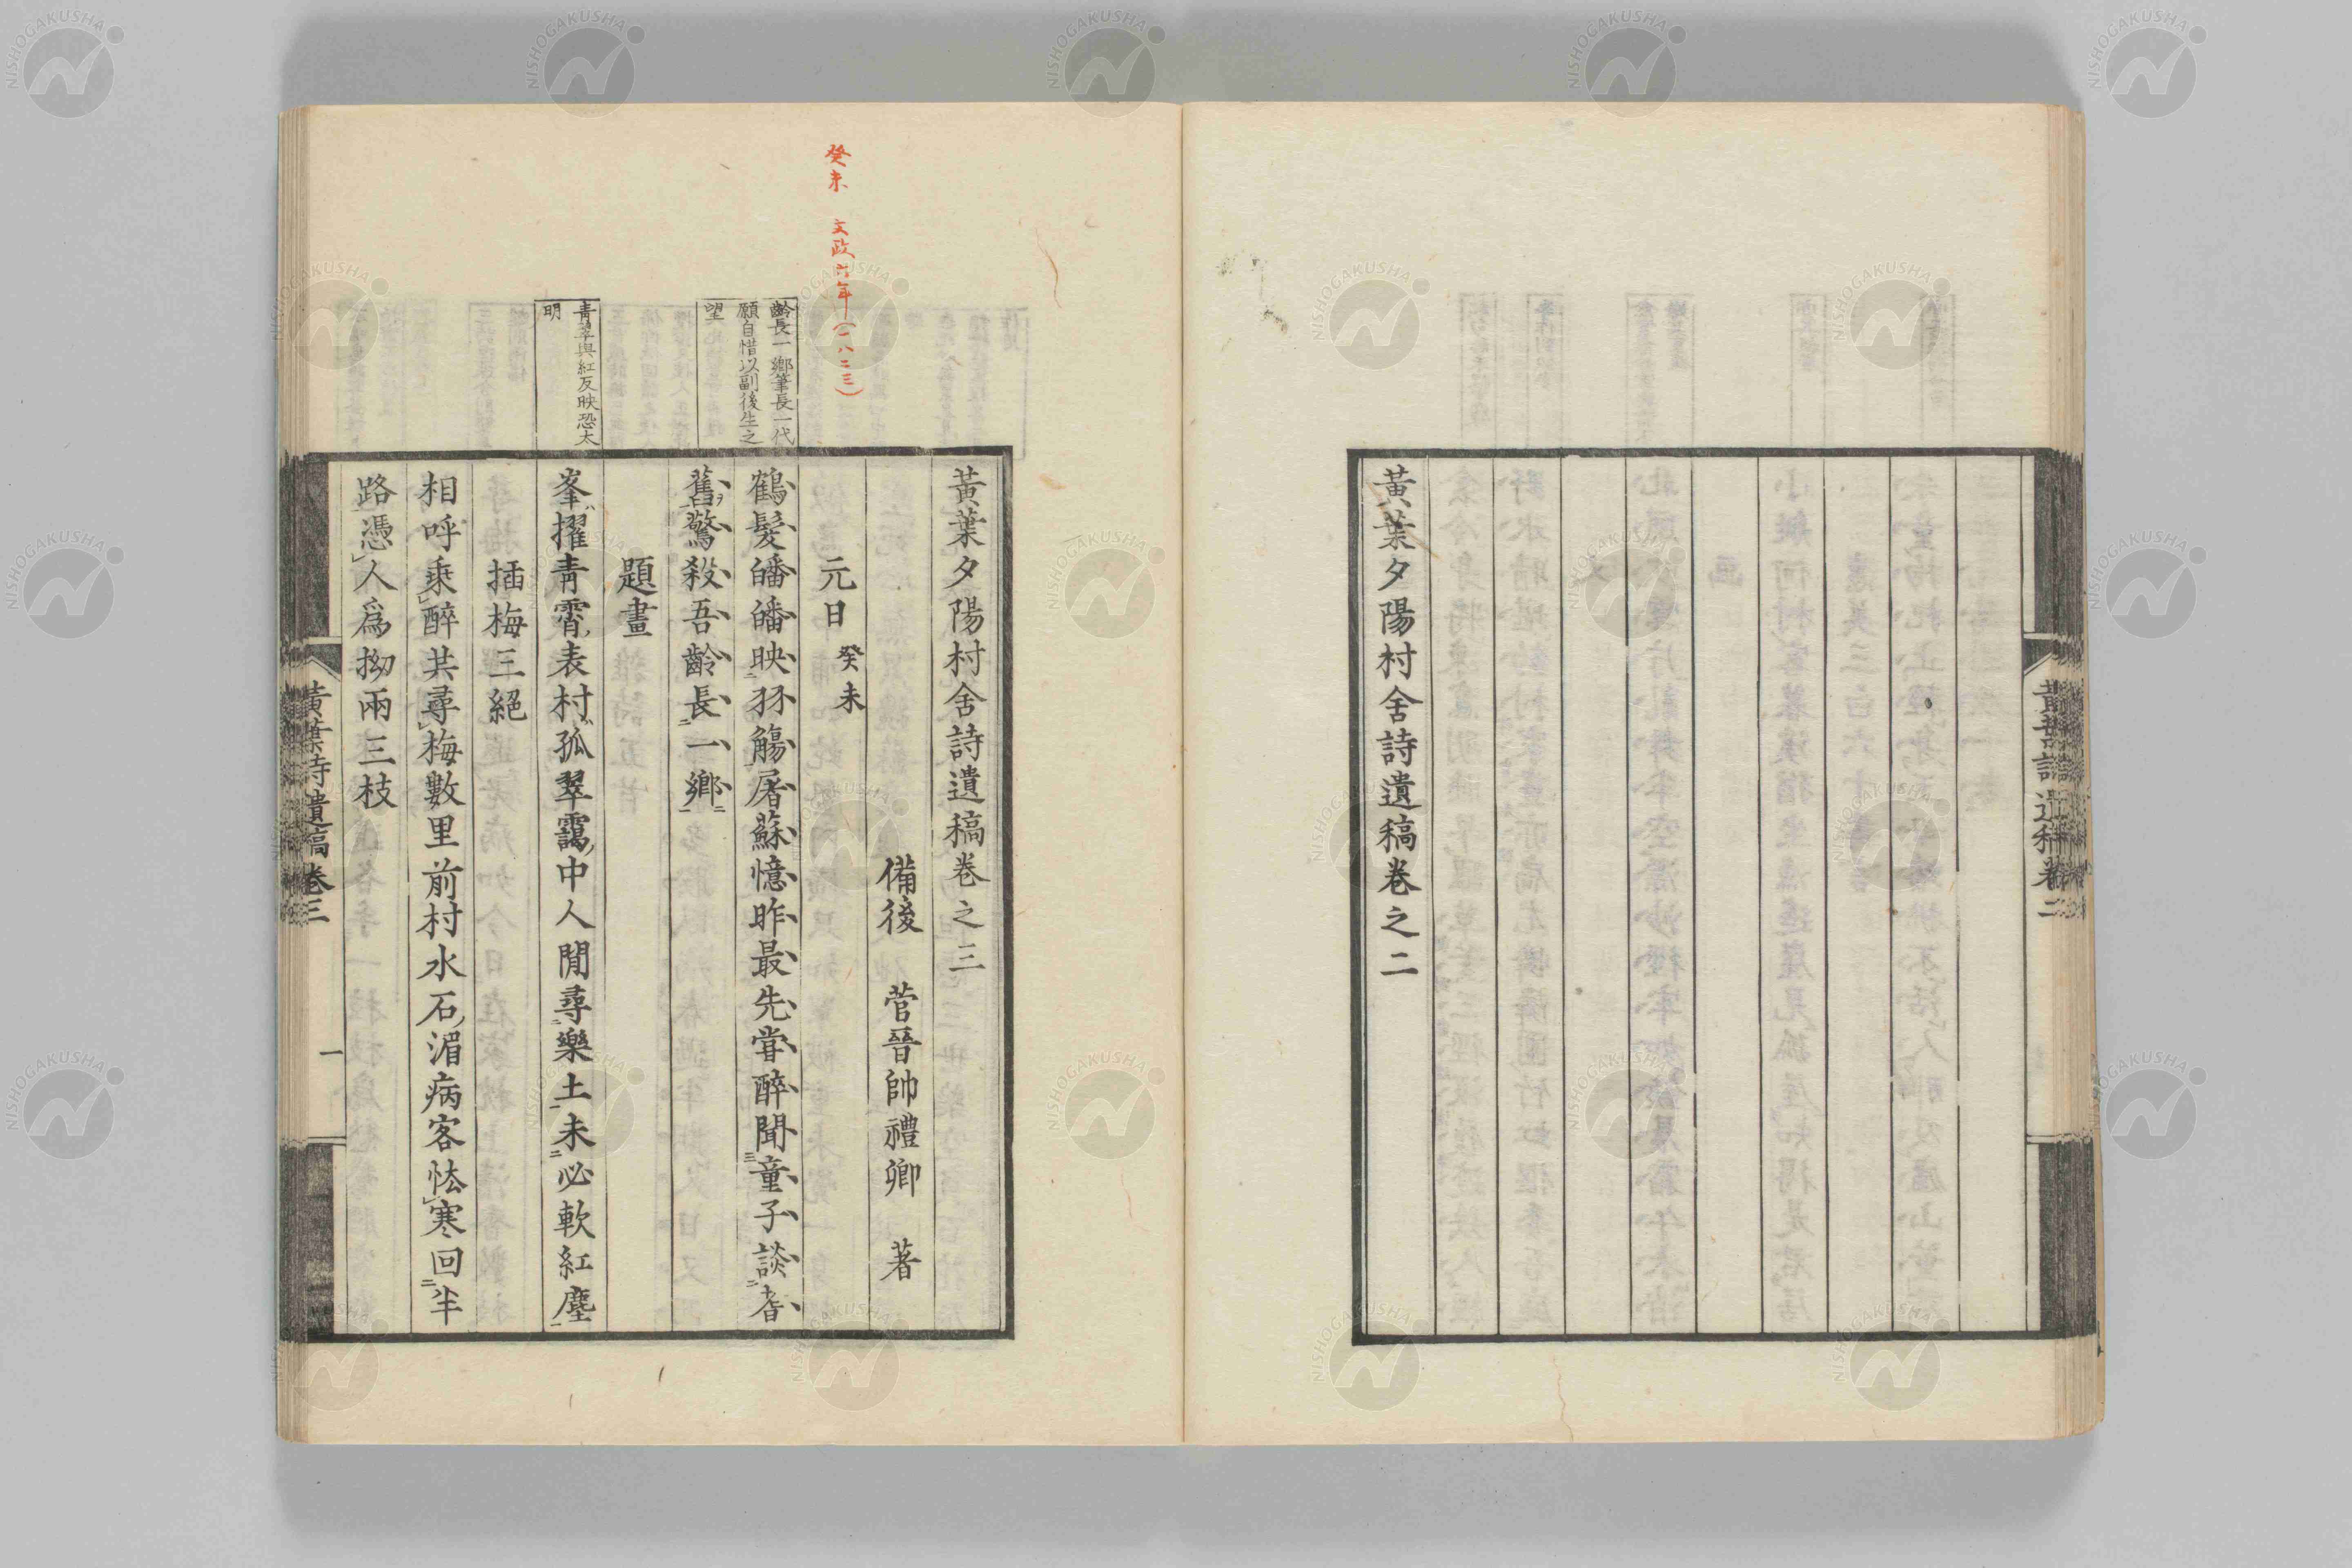 黃葉詩遺稿卷二
黃葉夕陽村舍詩遺稿卷之二
黃葉夕陽村舍詩遺稿卷之三
備後 菅晉帥禮卿 著
癸未 文政六年(一八二三)
元日 癸未
齡長一鄉筆長一代
願自惜以副後生之
望
鶴髮皤皤映羽觴屠蘇憶昨最先甞醉聞童子談耆
舊驚殺吾齡長一鄉
題畫
青翠與紅反映恐太
明
峯擢青霄表村孤翠靄中人閒尋樂土未必軟紅塵
插梅三絕
相呼乘醉共尋梅數里前村水石湄病客怯寒回半
路憑人爲拗兩三枝
黃葉詩遺稿卷三
一
NISHOGAKUSHA